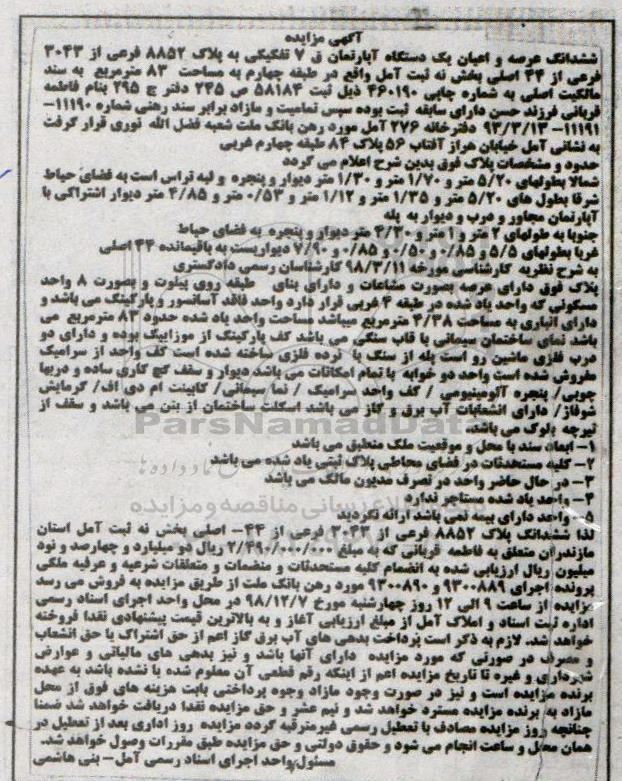 آگهی مزایده
ششدانگ عرصه و اعیان یک دستگاه آپارتمان ق ۷ تفکیکی به پلاک ۸۸۵۲ فرعی از ۳۰۴۳
فرعی از ۴۴ اصلی بخش نه ثبت آمل واقع در طبقه چهارم به مساحت ۸۳ مترمربع به سند
مالکیت اصلی به شماره چاپی ۴۶۰۱۹۰ ذیل ثبت ۵۸۱۸۴ ص ۲۴۵ دفتر ج ۲۹۵ بنام فاطمه
قربانی فرزند حسن دارای سابقه ثبت بوده سپس تمامیت و مازاد برابر سند رهنی شماره ۱۱۱۹۰-
۱۱۱۹۱- ۹۳/۳/۱۳ دفترخانه ۲۷۶ آمل مورد رهن بانک ملت شعبه فضل الله نوری قرار گرفت
به نشانی آمل خیابان هراز آفتاب ۵۶ پلاک ۸۴ طبقه چهارم غربی
حدود و مشخصات پلاک فوق بدین شرح اعلام می گردد
شمالا بطولهای ۵/۲۰ متر و ۱/۷۰ متر و ۱/۳۰ متر دیوار و پنجره و لبه تراس است به فضای حیاط
شرقا بطول های ۵/۲۰ متر و ۱/۳۵ متر و ۱/۱۲ متر و ۰/۵۳ متر و ۴/۸۵ متر دیوار اشتراکی با
آپارتمان مجاور و درب و دیوار به پله
جنوبا به طولهای ۲ متر و ۱ متر و ۴/۲۰ متر دیوار و پنجره به فضای حیاط
غربا بطولهای ۵/۵ و ۰/۸۵ و ۰/۵۰ و ۰/۸۵ و ۷/۹۰ دیواریست به باقیمانده ۴۴ اصلی
به شرح نظریه کارشناسی مورخه ۹۸/۳/۱۱ کارشناسان رسمی دادگستری
پلاک فوق دارای عرصه بصورت مشاعات و دارای بنای طبقه روی پیلوت و بصورت ۸ واحد
مسکونی که واحد یاد شده در طبقه ۴ غربی قرار دارد واحد فاقد آسانسور و پارکینگ می باشد و
دارای انباری به مساحت ۴/۳۸ مترمربع میباشد مساحت واحد یاد شده حدود ۸۳ مترمربع می
باشد نمای ساختمان سیمانی با قاب سنگی می باشد کف پارکینگ از موزاییک بوده و دارای دو
درب فلزی ماشین رو است پله از سنگ با نرده فلزی ساخته شده است کف واحد از سرامیک
مفروش شده است واحد دو خوابه با تمام امکانات می باشد دیوار و سقف گچ کاری ساده و دربها
چوبی/ پنجره آلومینیومی / کف واحد سرامیک / نما سیمانی/ کابینت ام دی اف/ گرمایش
شوفاژ/ دارای انشعابات آب برق و گاز می باشد اسکلت ساختمان از بتن می باشد و سقف از
تیرچه بلوک می باشد.
۱- ابعاد سند با محل و موقعیت ملک منطبق می باشد
۲- کلیه مستحدثات در فضای محاطی پلاک ثبتی یاد شده می باشد
۳- در حال حاضر واحد در تصرف مدیون مالک می باشد
۴- واحد یاد شده مستاجر ندارد
۵- واحد دارای بیمه نمی باشد ارائه نگردید
لذا ششدانگ پلاک ۸۸۵۲ فرعی از ۳۰۴۳ فرعی از ۴۴- اصلی بخش نه ثبت آمل استان
مازندران متعلق به فاطمه قربانی که به مبلغ ۲/۴۹۰/۰۰۰/۰۰۰ ریال دو میلیارد و چهارصد و نود
میلیون ریال ارزیابی شده به انضمام کلیه مستحدثات و منضمات و متعلقات شرعیه و عرفیه ملکی
پرونده اجرای ۹۳۰۰۸۸۹ و ۹۳۰۰۸۹۰ مورد رهن بانک ملت از طریق مزایده به فروش می رسد
مزایده از ساعت ۹ الی ۱۲ روز چهارشنبه مورخ ۹۸/۱۲/۷ در محل واحد اجرای اسناد رسمی
اداره ثبت اسناد و املاک آمل از مبلغ ارزیابی آغاز و به بالاترین قیمت پیشنهادی نقدا فروخته
خواهد شد. لازم به ذکر است پرداخت بدهی های آب برق گاز اعم از حق اشتراک یا حق انشعاب
و مصرف در صورتی که مورد مزایده دارای آنها باشد و نیز بدهی های مالیاتی و عوارض
شهرداری و غیره تا تاریخ مزایده اعم از اینکه رقم قطعی آن معلوم شده یا نشده باشد به عهده
برنده مزایده است و نیز در صورت وجود مازاد وجوه پرداختی بابت هزینه های فوق از محل
مازاد به برنده مزایده مسترد خواهد شد و نیم عشر و حق مزایده نقدا دریافت خواهد شد ضمنا
چنانچه روز مزایده مصادف با تعطیل رسمی غیرمترقبه گردد مزایده روز اداری بعد از تعطیل در
همان محل و ساعت انجام می شود و حقوق دولتی و حق مزایده طبق مقررات وصول خواهد شد.
مسئول واحد اجرای اسناد رسمی آمل- بنی هاشمی
ParsNamadData